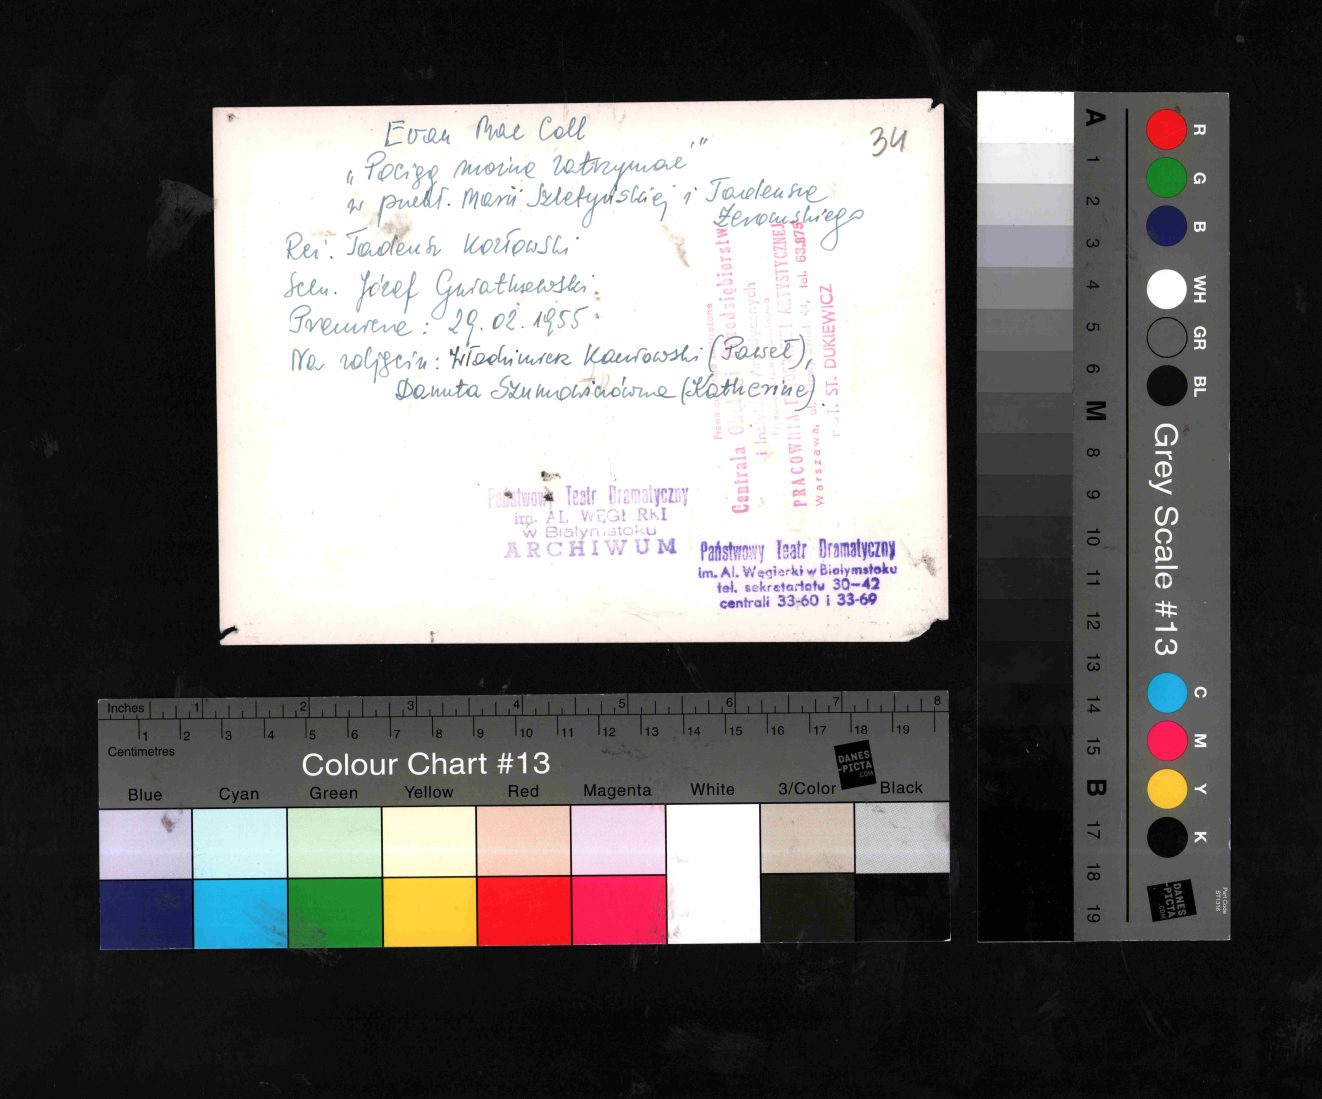 34
Evan Mac Coll
„Pociąg można zatrzymać"
w przekł. Marii Szletyńskiej i Tadeusza
Żeromskiego
Reż. Tadeusz Kozłowski
Scen. Józef Gwiatkowski
Premiera: 29.02.1955
Na zdjęciu: Włodzimierz Kanłowski (Paweł),
Danuta Szumowiczówna (Katherine)
Centrala
PRACOWNIA ARTYSTYCZNEJ
Warszawa, ul. 44, tel. 63.875
FOT. ST. DUKIEWICZ
Państwowy Teatr Dramatyczny
im. AL WĘGI RKI
w Białymstoku
ARCHIWUM
Państwowy Teatr Dramatyczny
im. Al. Węgierki w Białymstoku
tel. sekretariatu 30-42
centrali 33-60 i 33-69
Inches 1 2 3 4 5 6 7 8
1 2 3 4 5 6 7 8 9 10 11 12 13 14 15 16 17 18 19
Centimetres
Colour Chart #13
DANES
-PICTA
.COM
Blue Cyan Green Yellow Red Magenta White 3/Color Black
A 1 2 3 4 5 6 M 8 9 10 11 12 13 14 15 B 17 18 19
R G B WH GR BL
Grey Scale #13
C M Y K
DANES
-PICTA
.COM
Part Code
ST1316